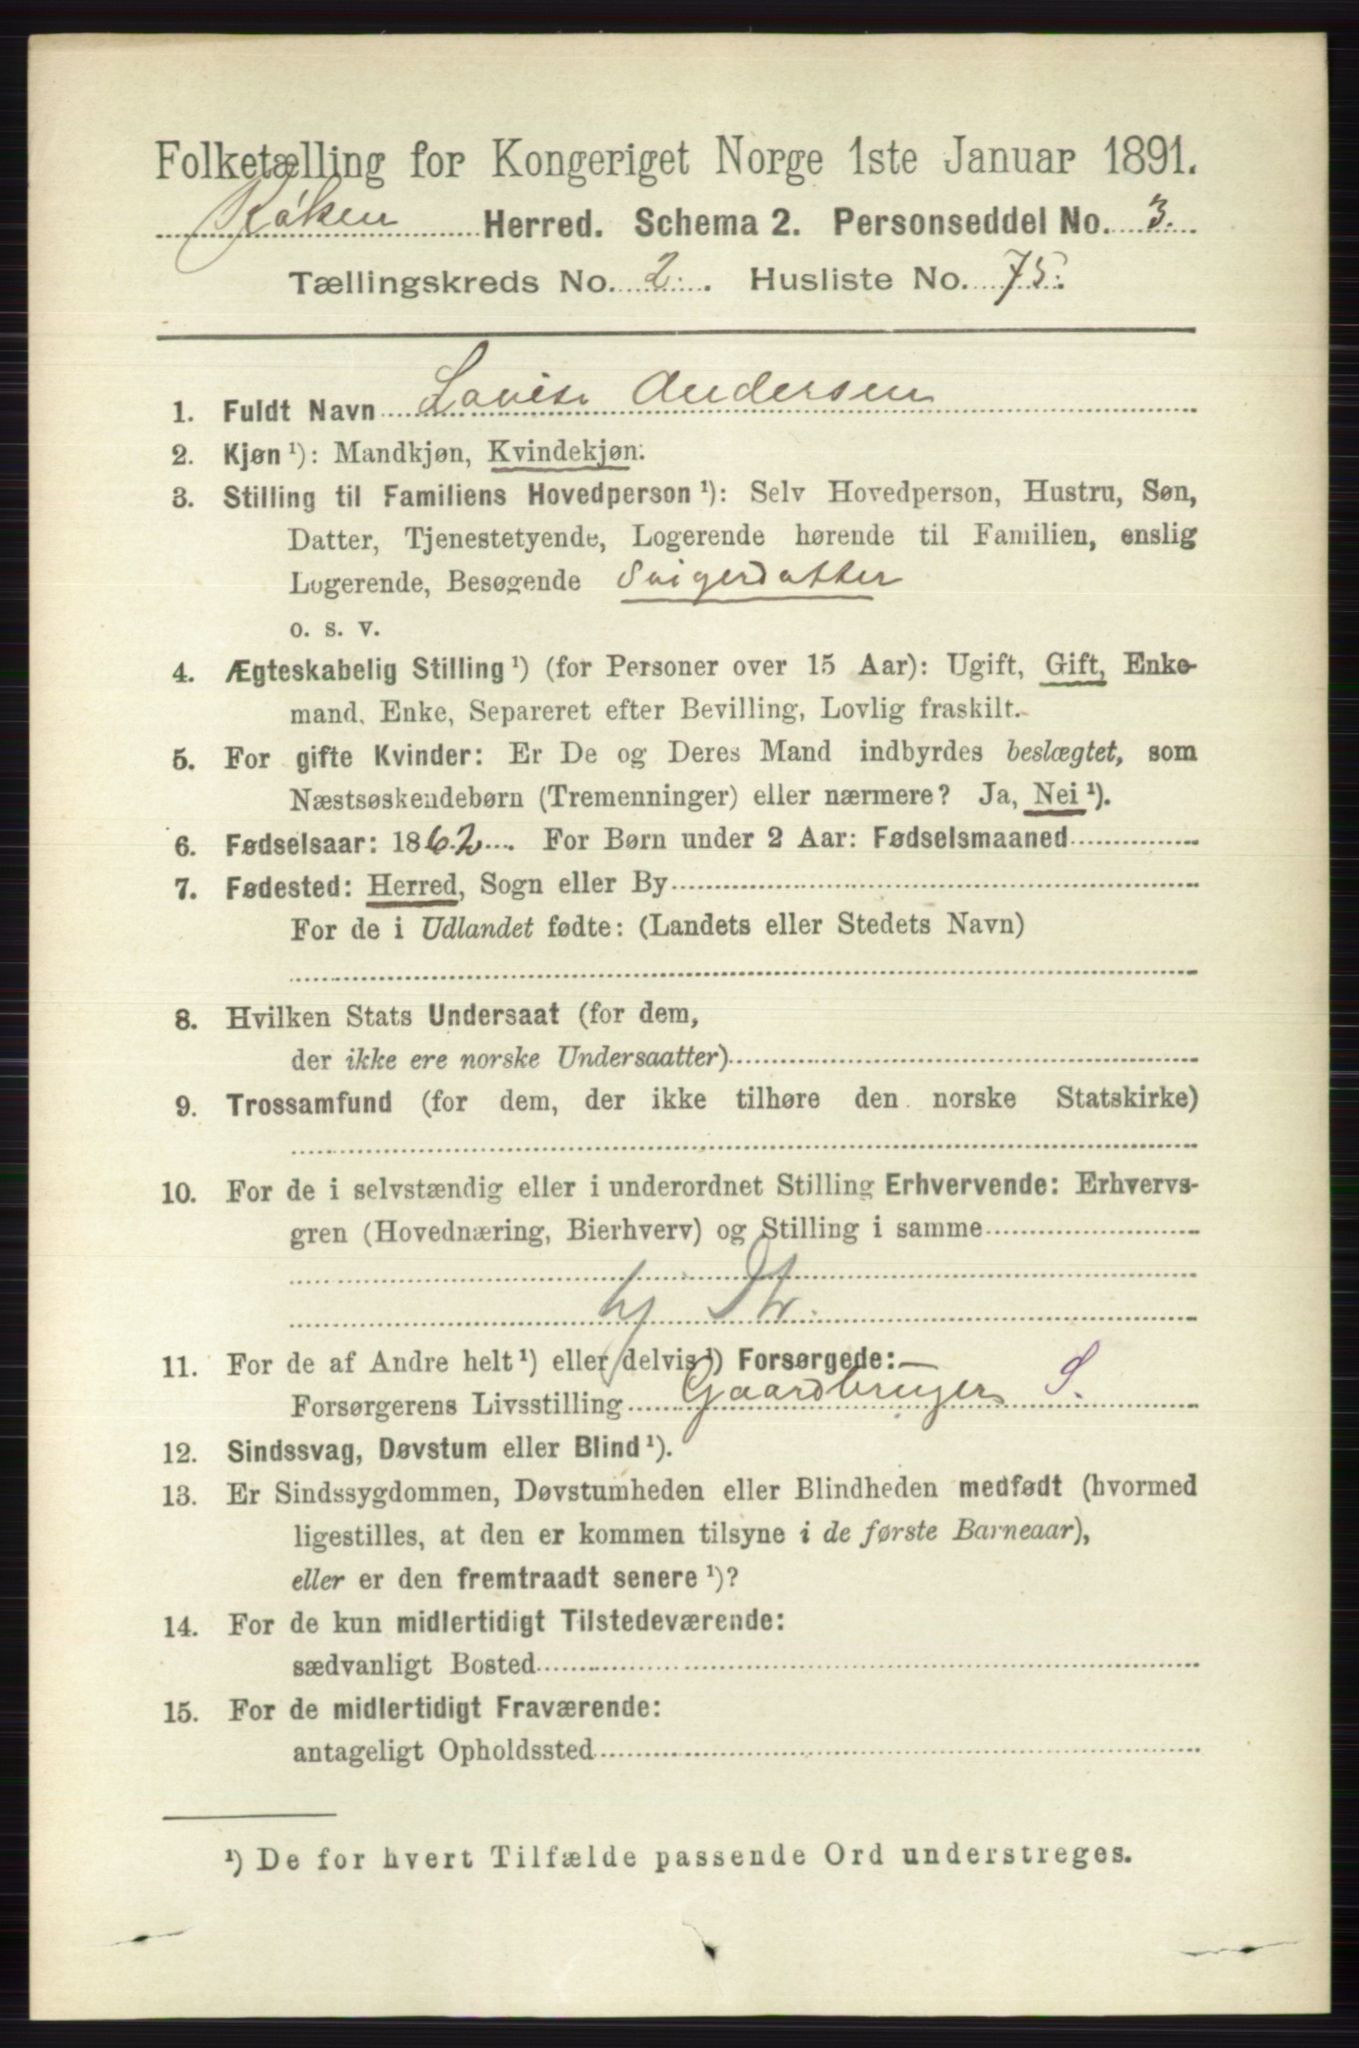 Folketælling for Kongeriget Norge 1ste Januar 1891.
Røken Herred. Schema 2. Personseddel No. 3.
Tællingskreds No. 2. Husliste No. 75.
1. Fuldt Navn Lovise Andersen
2. Kjøn ¹): Mandkjøn, Kvindekjøn.
3. Stilling til Familiens Hovedperson ¹): Selv Hovedperson, Hustru, Søn,
Datter, Tjenestetyende, Logerende hørende til Familien, enslig
Logerende, Besøgende Svigerdatter
o. s. v.
4. Ægteskabelig Stilling ¹) (for Personer over 15 Aar): Ugift, Gift, Enke-
mand, Enke, Separeret efter Bevilling, Lovlig fraskilt.
5. For gifte Kvinder: Er De og Deres Mand indbyrdes beslægtet, som
Næstsøskendebørn (Tremenninger) eller nærmere? Ja, Nei ¹).
6. Fødselsaar: 1862. For Børn under 2 Aar: Fødselsmaaned
7. Fødested: Herred, Sogn eller By
For de i Udlandet fødte: (Landets eller Stedets Navn)
8. Hvilken Stats Undersaat (for dem,
der ikke ere norske Undersaatter)
9. Trossamfund (for dem, der ikke tilhøre den norske Statskirke)
10. For de i selvstændig eller i underordnet Stilling Erhvervende: Erhvervs-
gren (Hovednæring, Bierhverv) og Stilling i samme
hj
11. For de af Andre helt ¹) eller delvis ¹) Forsørgede:
Forsørgerens Livsstilling Gaardbruger S.
12. Sindssvag, Døvstum eller Blind ¹).
13. Er Sindssygdommen, Døvstumheden eller Blindheden medfødt (hvormed
ligestilles, at den er kommen tilsyne i de første Barneaar),
eller er den fremtraadt senere ¹)?
14. For de kun midlertidigt Tilstedeværende:
sædvanligt Bosted
15. For de midlertidigt Fraværende:
antageligt Opholdssted
¹) De for hvert Tilfælde passende Ord understreges.